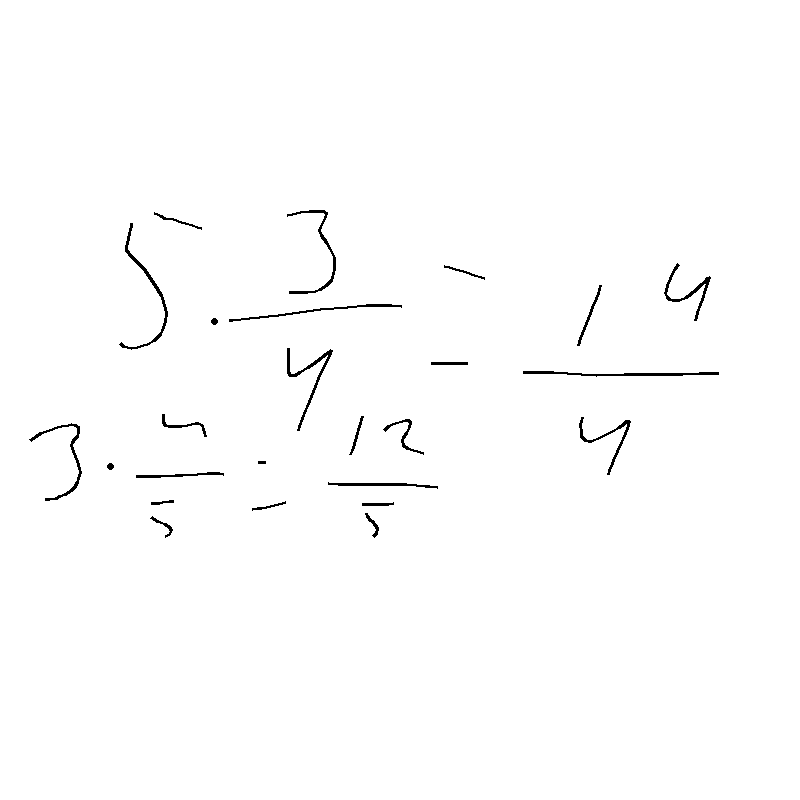 5 · 3/4 = 14/4
3 · 4/5 = 12/5